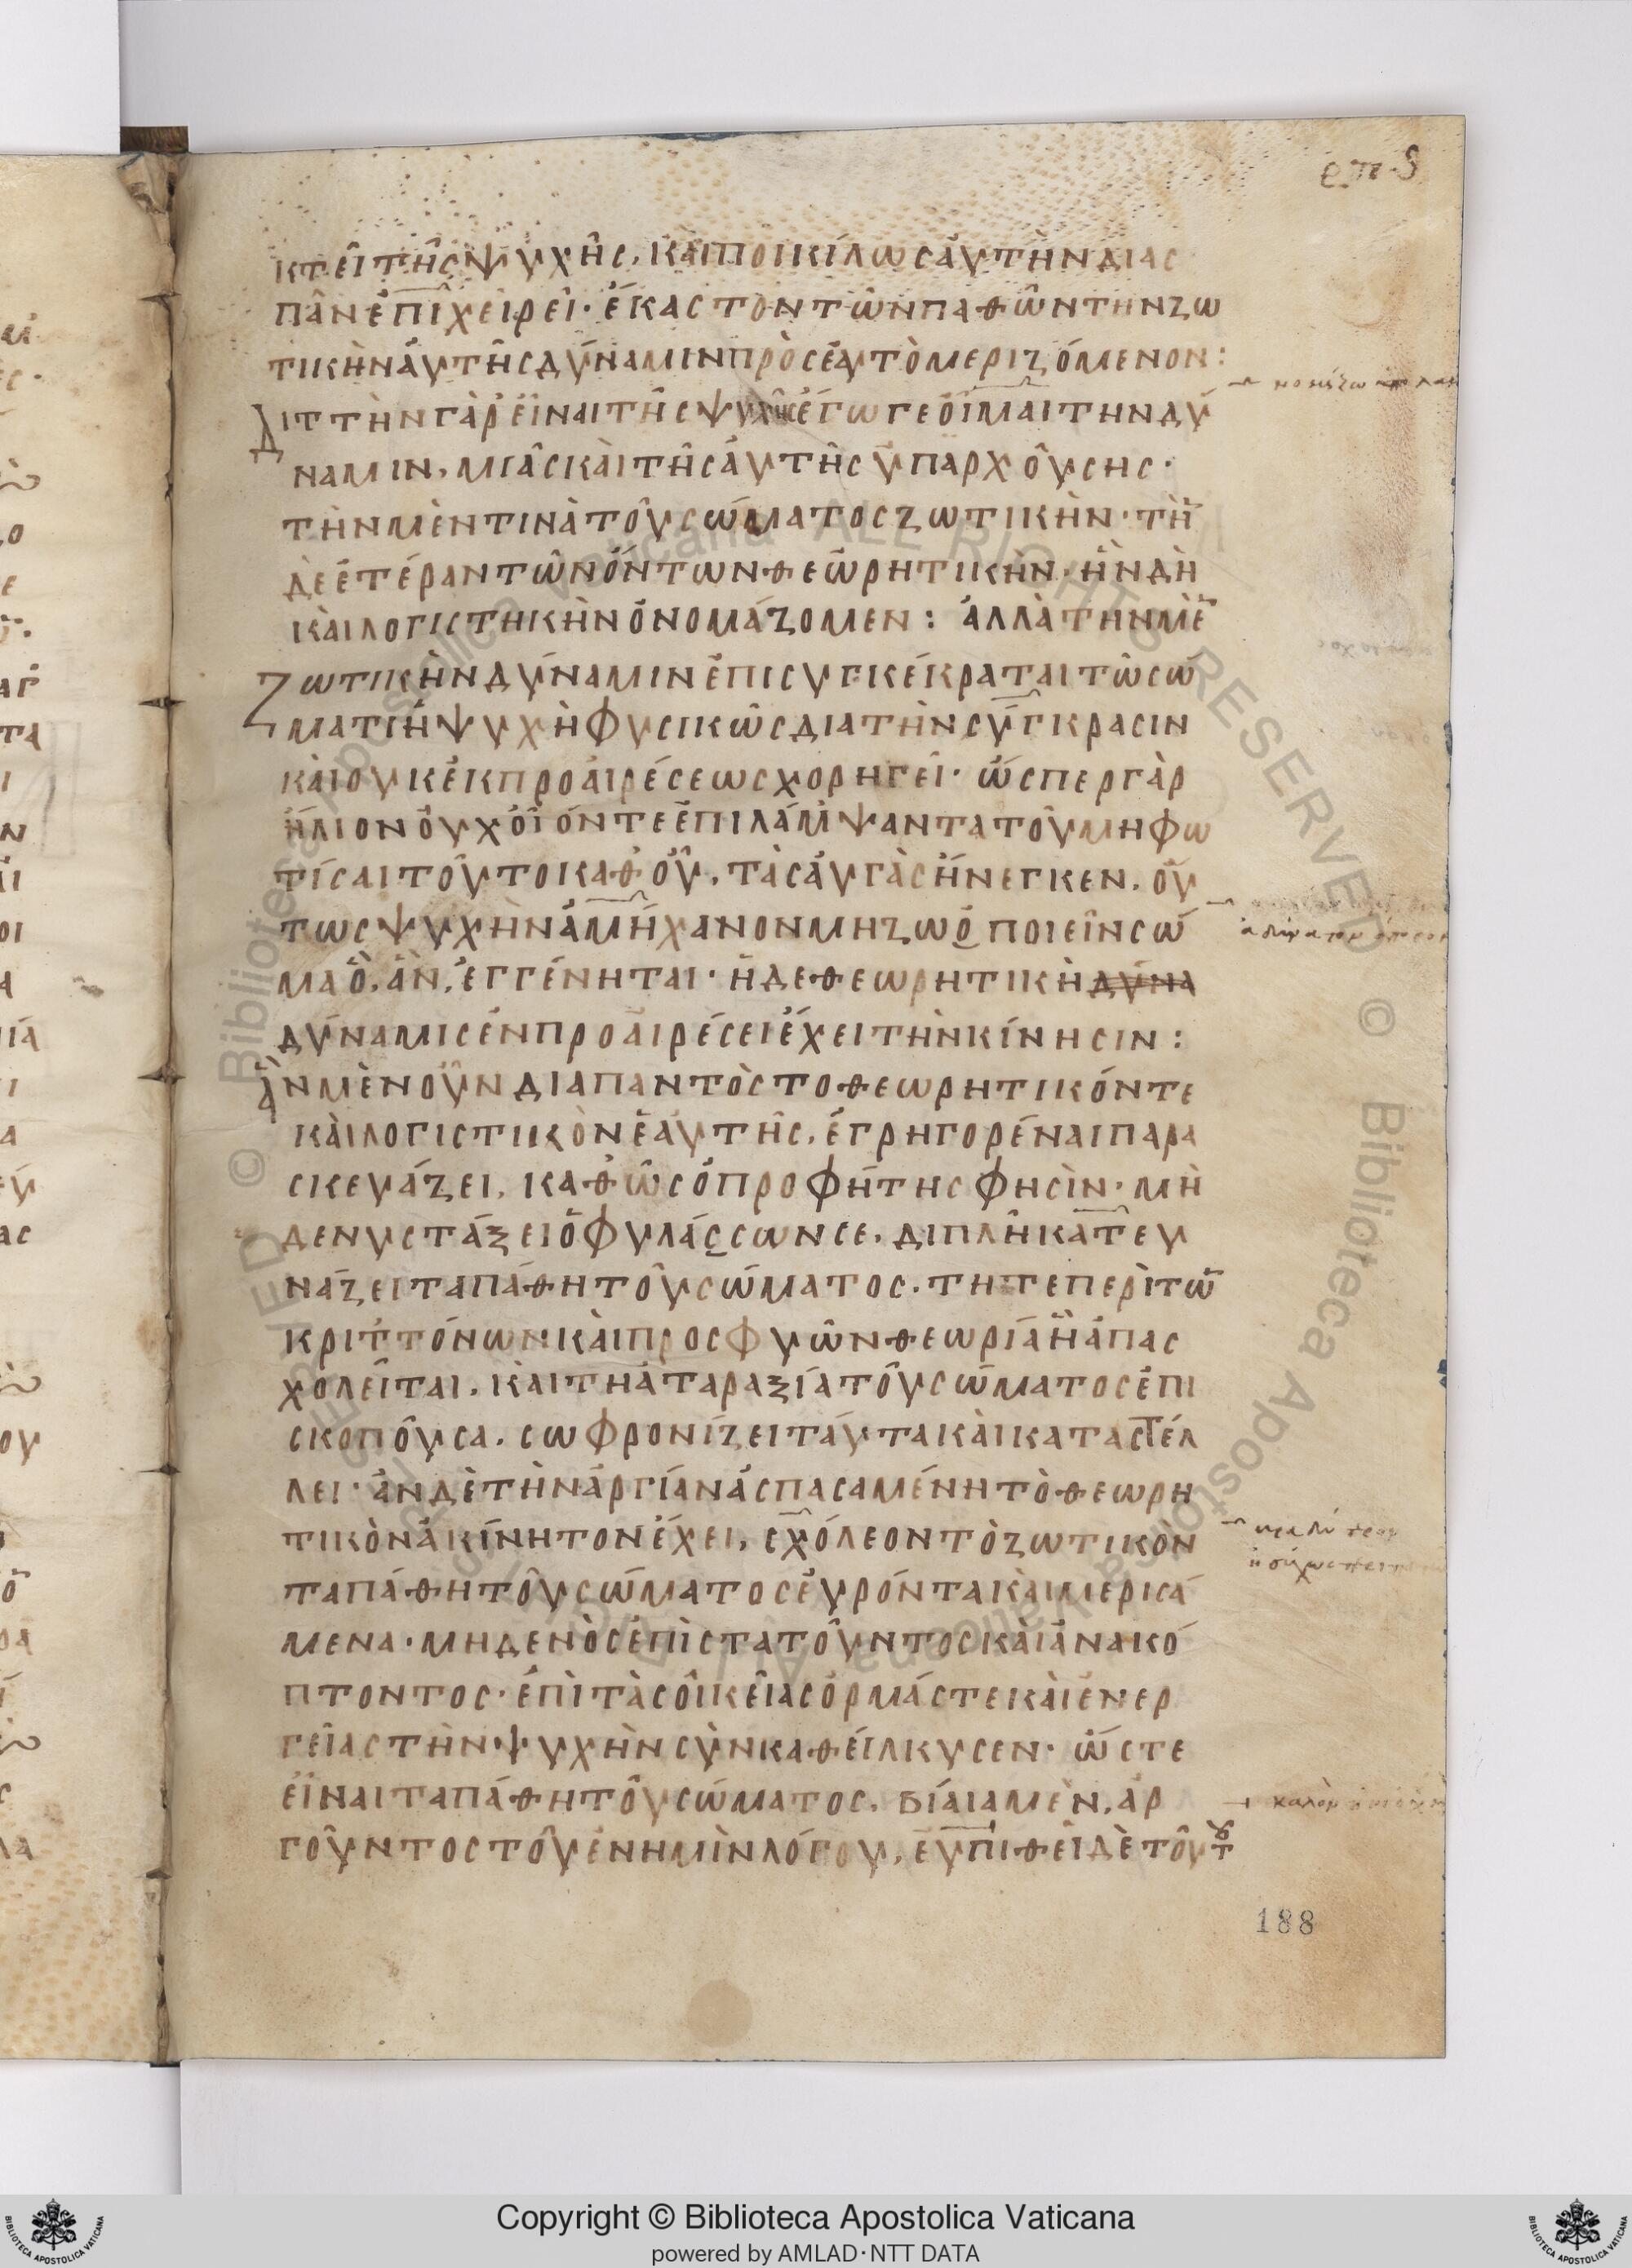 επ·ς
κτεῖ τῆς ψυχῆς, καὶ ποικίλως ἀυτὴν διασ
πᾶν ἐπιχειρεῖ· ἕκαστον τῶν παθῶν την ζω
τικὴν ἀυτῆς δύναμιν πρὸς ἑαυτὸ μεριζόμενον:
Διττὴν γὰρ εἶναι τῆς ψυχῆς ἔγωγε οἶμαι την δύ
ναμιν, μιᾶς καὶ τῆς ἀυτῆς ὑπαρχούσης·
τὴν μὲν τινὰ τοῦ σώματος ζωτικὴν· τὴ̄
δὲ ἑτέραν τῶν ὄντων θεωρητικὴν· ἣν δὴ
καὶ λογιστηκὴν ὀνομάζομεν: ἀλλὰ την μὲ̄
Ζωτικὴν δύναμιν ἐπισυγκέκραται τῶ σώ
ματι ἡ ψυχὴ φυσικῶς δια τὴν σύγκρασιν
καὶ ουκ ἐκ προαιρέσεως χορηγεῖ· ὥσπερ γὰρ
ἥλιον οὐχ οἷόντε ἐπιλάμψαντα τοῦ μη φω
τίσαι τούτοι καθ οὗ, τὰς ἀυγὰς ἤνεγκεν, οὕ
τως ψυχὴν ἀμήχανον μη ζωοποιεῖν σῶ
μα ὃ, ἂν, ἐγγένηται· ἡ δε θεωρητικὴ δύνα
δύναμις ἐν προαιρέσει ἔχει τὴν κίνησιν:
Ἂν μὲν οὖν διαπαντὸς το θεωρητικόν τε
καὶ λογιστικὸν ἑαυτῆς, ἐγρηγορέναι παρα
σκευάζει, καθ ὡς ὁ προφήτης φησὶν· μὴ
δε νυστάξει ὁ φυλάσσων σε, διπλῆ κατευ
νάζει τα πάθη τοῦ σώματος, τη τε περὶ τῶ̄
κριττόνων καὶ προσφυῶν θεωρία ἣ ἀπασ
χολεῖται, καὶ τη ἀταραξία τοῦ σώματος ἐπι
σκοποῦσα, σωφρονίζει ταύτα καὶ καταστέλ
λει· ἀν δὲ τὴν ἀργίαν ἀσπασαμένη τὸ θεωρη
τικὸν ἀκίνητον ἔχει, σχόλεον τὸ ζωτικὸν
τα πάθη τοῦ σώματος ἑυρόντα καὶ μερισά
μενα· μηδενὸς ἐπιστατοῦντος καὶ ἀνακό
πτοντος· ἐπὶ τὰς οἰκείας ὁρμάς τε καὶ ἐνερ
γεῖας τὴν ψυχὴν σὺνκαθείλκυσεν· ὥστε
εἶναι τα πάθη τοῦ σώματος, βίαια μὲν, ἀρ
γοῦντος τοῦ ἐν ημὶν λόγου, ἐυπιθεῖ δὲ τούτου
νομίζω
188
Copyright © Biblioteca Apostolica Vaticana
powered by AMLAD·NTT DATA